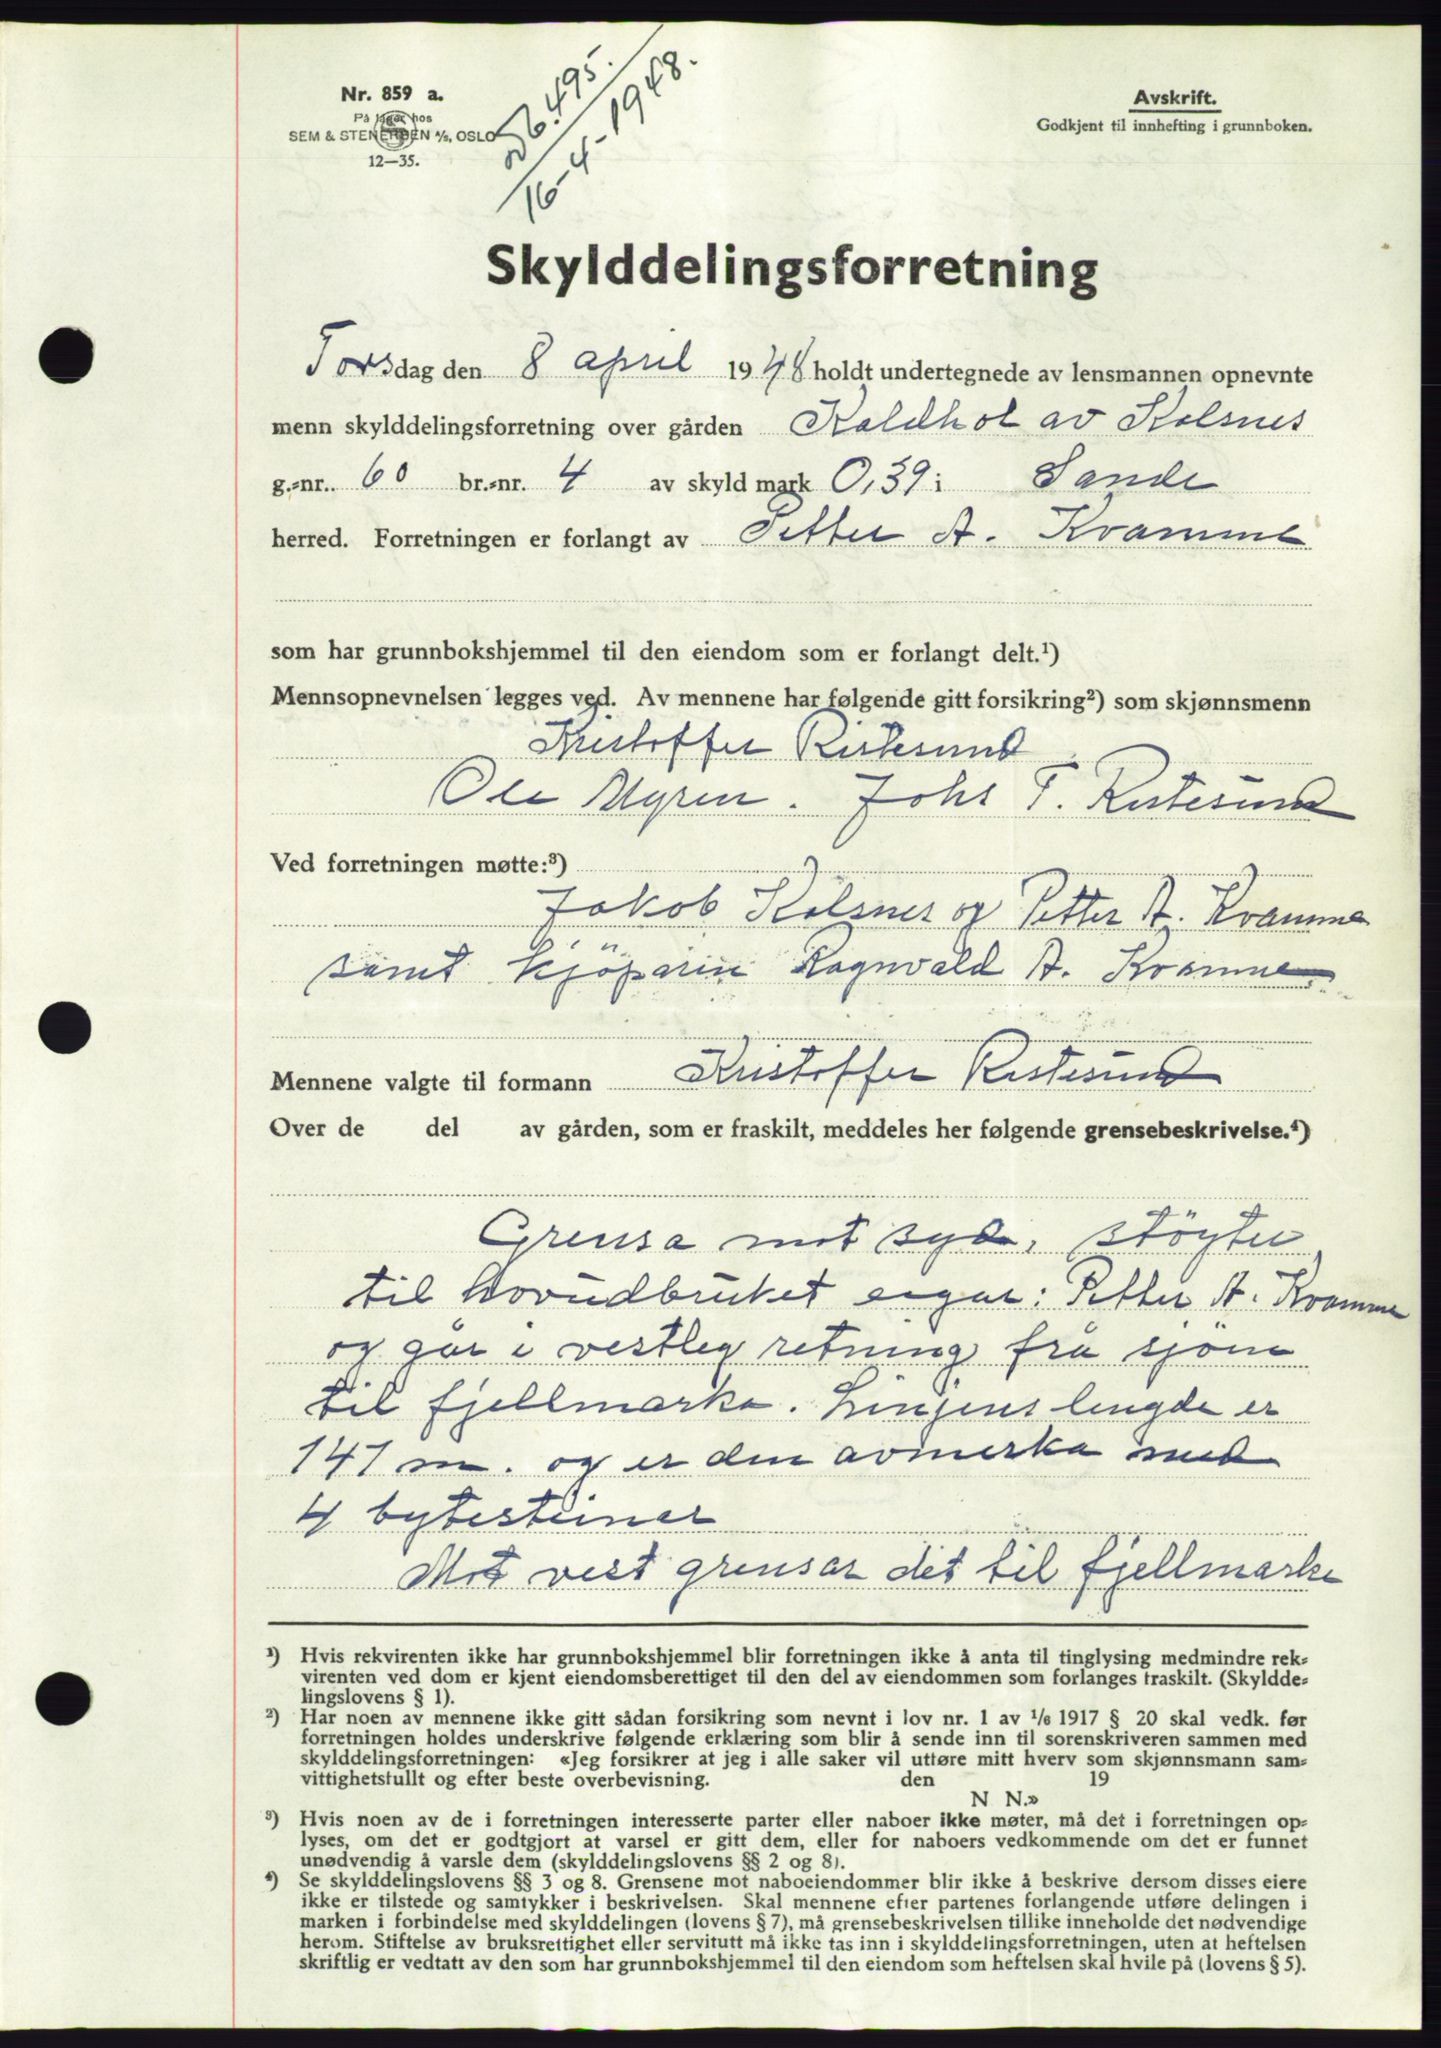 Nr. 859 a.
På lager hos
SEM & STENERSEN A/S, OSLO
12—35.
Db. 495.
16-4-1948.
Avskrift.
Godkjent til innhefting i grunnboken.
Skylddelingsforretning
Torsdag den 8 april 1948 holdt undertegnede av lensmannen opnevnte
menn skylddelingsforretning over gården Koldhol av Kolsnes
g.=nr. 60 br.=nr. 4 av skyld mark 0,39 i Sande
herred. Forretningen er forlangt av Petter A. Kvamme
som har grunnbokshjemmel til den eiendom som er forlangt delt.¹)
Mennsopnevnelsen legges ved. Av mennene har følgende gitt forsikring²) som skjønnsmenn
Kristoffer Ristesund
Ole Myren. Johs T. Ristesund
Ved forretningen møtte:³)
Jakob Kolsnes og Petter A. Kvamme
samt kjöparin Ragnvald A. Kvamme
Mennene valgte til formann Kristoffer Ristesund
Over de del av gården, som er fraskilt, meddeles her følgende grensebeskrivelse.⁴)
Grensa mot syd, støyter
til hovudbruket eigar: Petter A. Kvamme
og går i vestleg retning frå sjöen
til fjellmarka. Linjens lengde er
141 m. og er den avmerka med
4 bytesteinar
Mot vest grensar det til fjellmarka
¹) Hvis rekvirenten ikke har grunnbokshjemmel blir forretningen ikke å anta til tinglysing medmindre rek=
virenten ved dom er kjent eiendomsberettiget til den del av eiendommen som forlanges fraskilt. (Skyldde=
lingslovens § 1).
²) Har noen av mennene ikke gitt sådan forsikring som nevnt i lov nr. 1 av 1/6 1917 § 20 skal vedk. før
forretningen holdes underskrive følgende erklæring som blir å sende inn til sorenskriveren sammen med
skylddelingsforretningen: «Jeg forsikrer at jeg i alle saker vil utføre mitt hverv som skjønnsmann sam=
vittighetsfullt og efter beste overbevisning. den 19
N N.»
³) Hvis noen av de i forretningen interesserte parter eller naboer ikke møter, må det i forretningen op=
lyses, om det er godtgjort at varsel er gitt dem, eller for naboers vedkommende om det er funnet
unødvendig å varsle dem (skylddelingslovens §§ 2 og 8).
⁴) Se skylddelingslovens §§ 3 og 8. Grensene mot naboeiendommer blir ikke å beskrive dersom disses eiere
ikke er tilstede og samtykker i beskrivelsen. Skal mennene efter partenes forlangende utføre delingen i
marken i forbindelse med skylddelingen (lovens § 7), må grensebeskrivelsen tillike inneholde det nødvendige
herom. Stiftelse av bruksrettighet eller servitutt må ikke tas inn i skylddelingsforretningen, uten at heftelsen
skriftlig er vedtatt av den som har grunnbokshjemmel til den eiendom som heftelsen skal hvile på (lovens § 5).